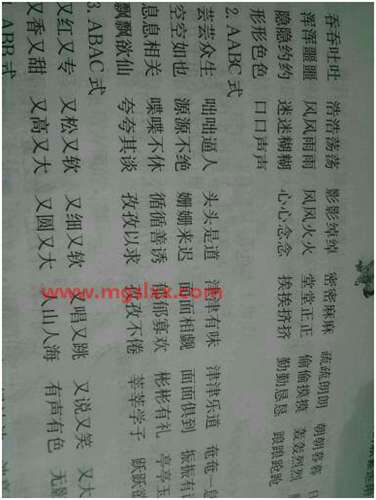 吞吞吐吐 浩浩荡荡 影影绰绰 密密麻麻 疏疏朗朗 朝朝暮暮
浑浑噩噩 风风雨雨 风风火火 堂堂正正 偷偷摸摸 轰轰烈烈
隐隐约约 迷迷糊糊 心心念念 挨挨挤挤 勤勤恳恳 踉踉跄跄
形形色色 口口声声
2. AABC 式
芸芸众生 咄咄逼人 头头是道 津津有味 津津乐道 奄奄一
空空如也 源源不绝 姗姗来迟 面面相觑 面面俱到 振振有
息息相关 喋喋不休 循循善诱 郁郁寡欢 彬彬有礼 亭亭玉
飘飘欲仙 夸夸其谈 孜孜以求 孜孜不倦 莘莘学子 跃跃欲
3. ABAC 式
又红又专 又松又软 又细又软 又唱又跳 又说又笑 又大
又香又甜 又高又大 又圆又大 人山人海 有声有色 无
ABB 式